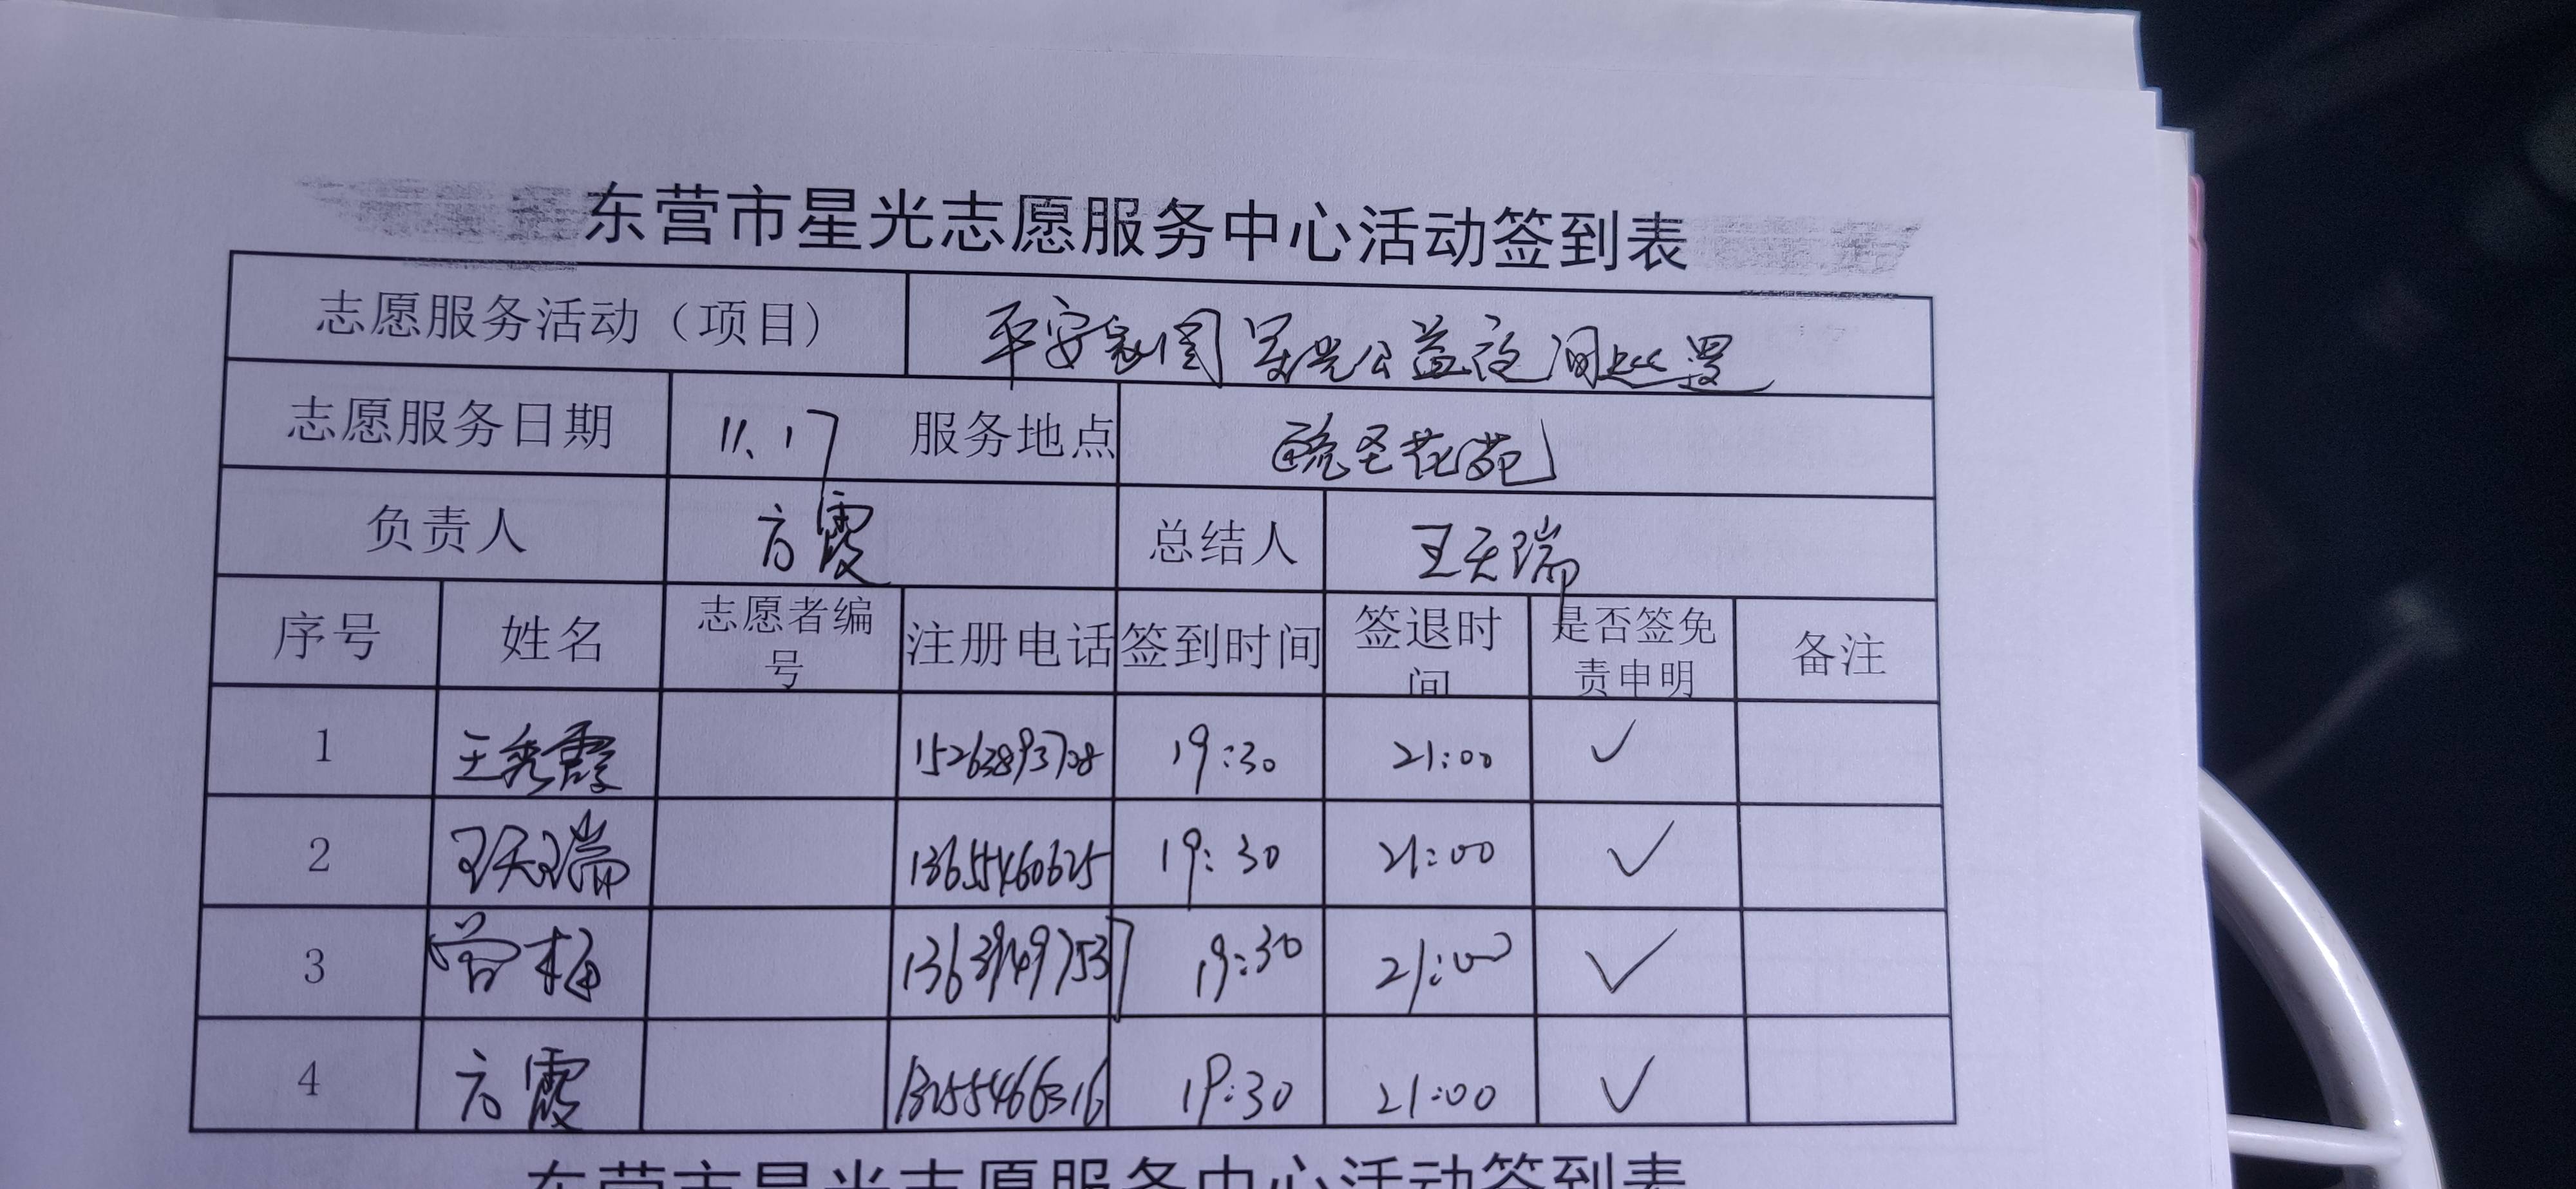 东营市星光志愿服务中心活动签到表
志愿服务活动（项目） 平安家园星光公益夜间巡逻
志愿服务日期 11.17 服务地点 花苑
负责人 方霞 总结人 王天瑞
序号 姓名 志愿者编号 注册电话 签到时间 签退时间 是否签免责申明 备注
1 王秀霞 15263893708 19:30 21:00 ✓
2 王天瑞 13655460625 19:30 21:00 ✓
3 曾梅 13639497537 19:30 21:00 ✓
4 方霞 19:30 21:00 ✓
东营市星光志愿服务中心活动签到表